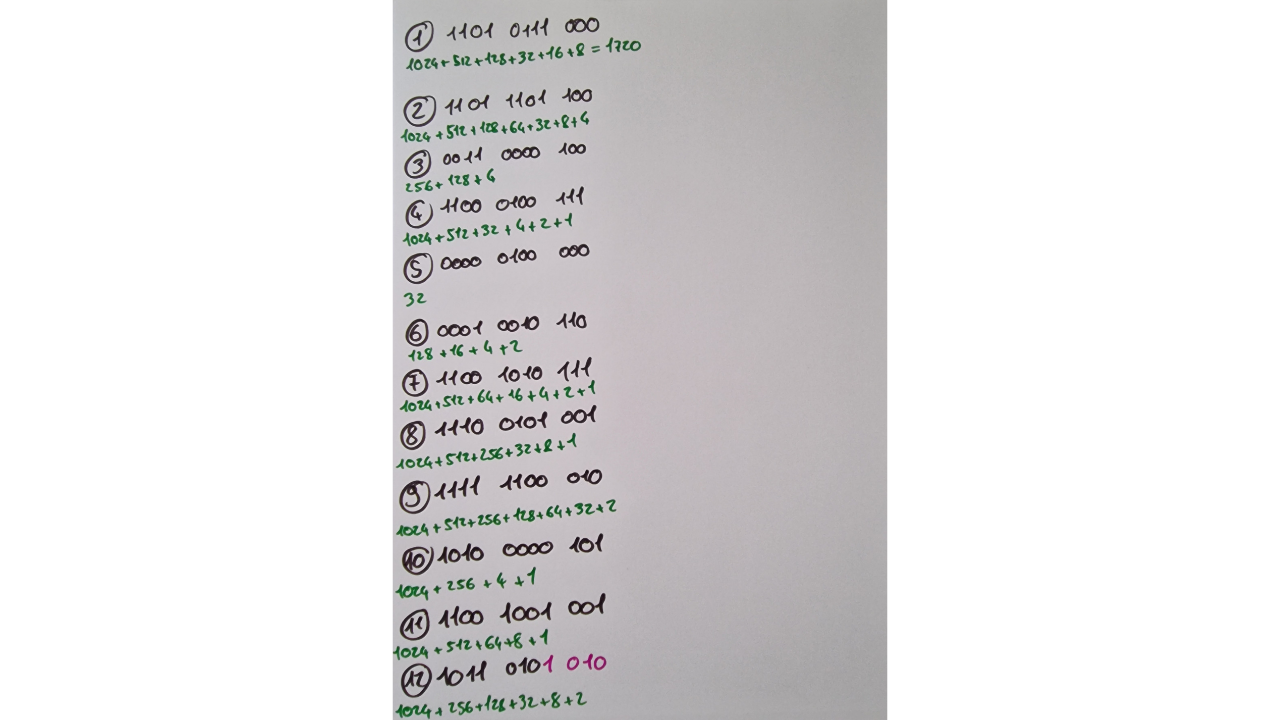 ① 1101 0111 000
1024+512+128+32+16+8 = 1720
② 1101 1101 100
1024+512+128+64+32+8+4
③ 0011 0000 100
256+128+4
④ 1100 0100 111
1024+512+32+4+2+1
⑤ 0000 0100 000
32
⑥ 0001 0010 110
128+16+4+2
⑦ 1100 1010 111
1024+512+64+16+4+2+1
⑧ 1110 0101 001
1024+512+256+32+8+1
⑨ 1111 1100 010
1024+512+256+128+64+32+2
⑩ 1010 0000 101
1024+256+4+1
⑪ 1100 1001 001
1024+512+64+8+1
⑫ 1011 0101 010
1024+256+128+32+8+2